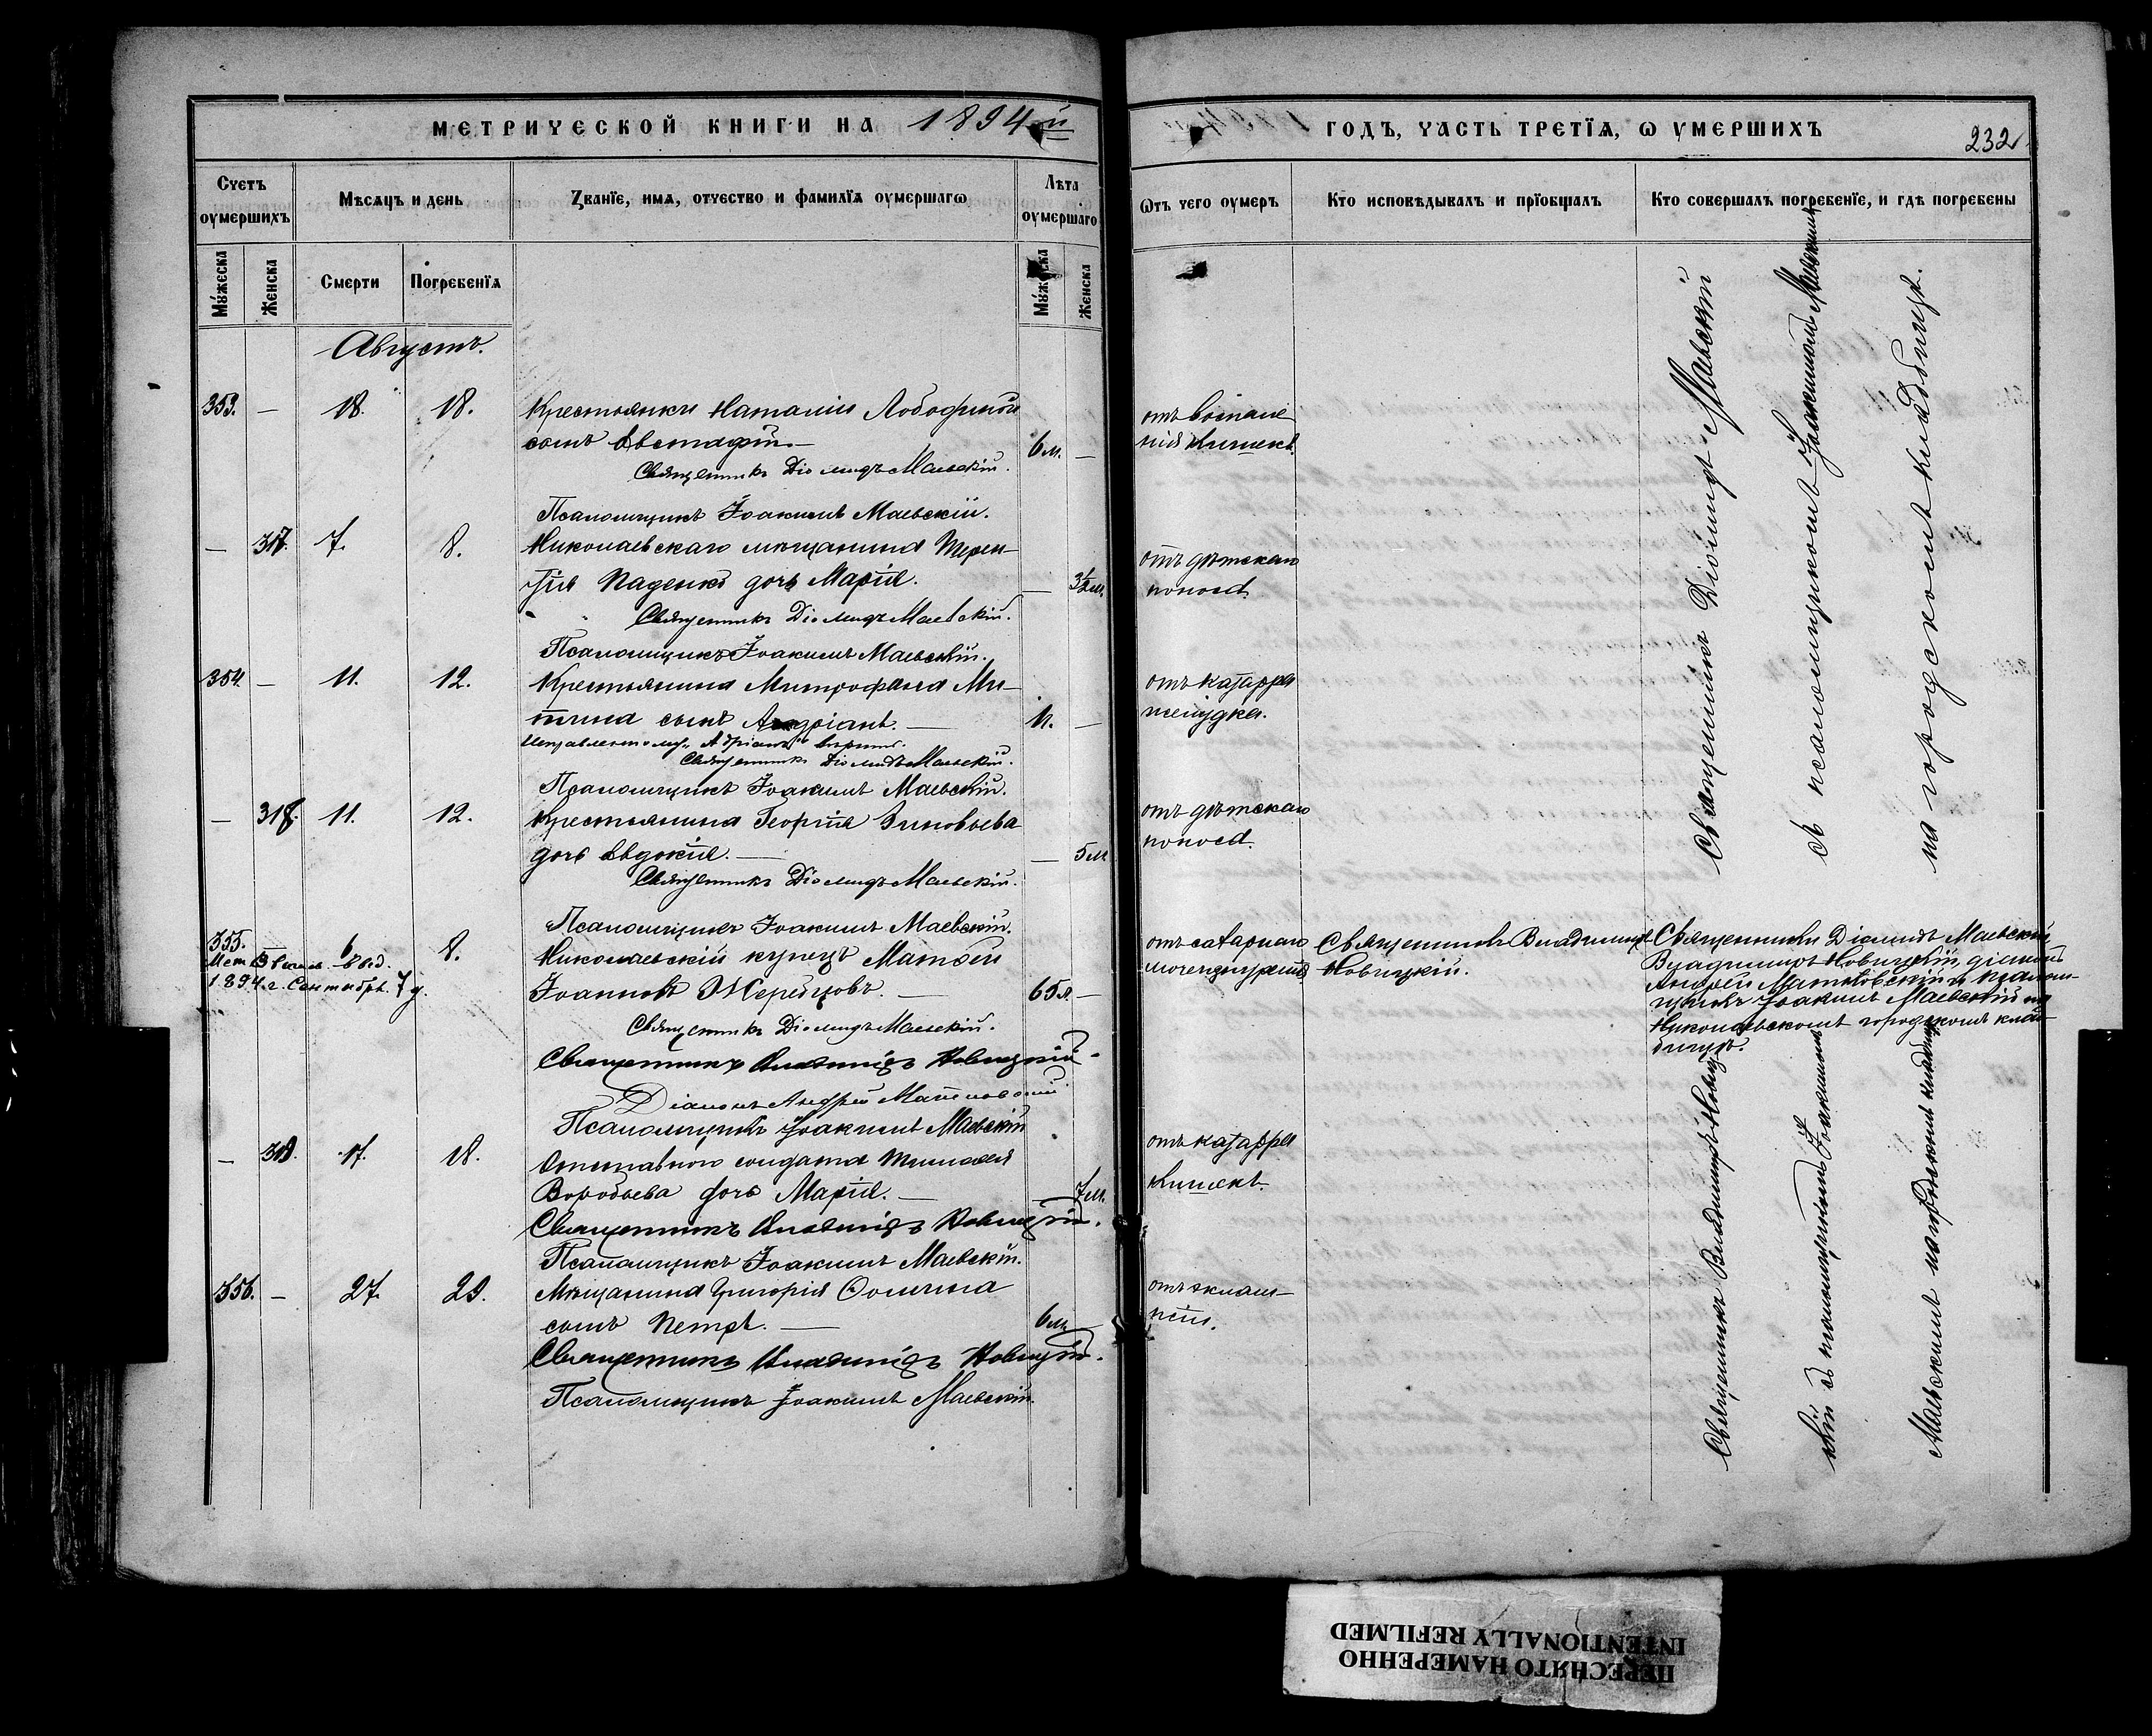 МЕТРИЧЕСКОЙ КНИГИ НА 1894й
ГОДЪ, ЧАСТЬ ТРЕТЇѦ, Ѡ УМЕРШИХЪ
232
Счетъ оумершихъ
Мѣсяцъ и день
Званїе, имѧ, отчество и фамилїѧ оумершагѡ
Лѣта оумершаго
Мужеска
Женска
Смерти
Погребенїѧ
Мужеска
Женска
Ѡтъ чего оумеръ
Кто исповѣдывалъ и прїобщалъ
Кто совершалъ погребенїе, и гдѣ погребены
Августъ.
353. — 18. 18. Крестьянки Наталіи Лободиной
сынъ Евстафій. — 6 м. —
отъ воспале
нія кишекъ.
Священникъ Діомидъ Маевскій.
Псаломщикъ Іоакимъ Маевскій.
— 317. 7. 8. Николаевскаго мѣщанина Терен-
тія Паденко дочь Марія. — 3½ м.
отъ дѣтскаго
поноса.
Священникъ Діомидъ Маевскій.
Псаломщикъ Іоакимъ Маевскій.
354. — 11. 12. Крестьянина Митрофана Ми-
сынъ —
отъ катарра
желудка.
Исправленному „Адріанъ" вѣрить.
Священникъ Діомидъ Маевскій.
Псаломщикъ Іоакимъ Маевскій.
— 318. 11. 12. Крестьянина Георгія Зиновьева
дочь Евдокія. — — 5 м.
отъ дѣтскаго
поноса.
Священникъ Діомидъ Маевскій.
Псаломщикъ Іоакимъ Маевскій.
355. — 6 8. Николаевскій купецъ Матвѣй
Мет. выд.
1894 г. Сентября 7 д.
Іоанновъ Жеребцовъ. — 65 л. —
Священникъ Владиміръ
Новицкій.
Священники Діомидъ Маевскій,
Владиміръ Новицкій, діаконъ
Андрей и псалом-
щикъ Іоакимъ Маевскій на
Николаевскомъ городскомъ клад-
бищѣ.
Священникъ Діомидъ Маевскій.
Священникъ Владиміръ Новицкій.
Діаконъ Андрей
Псаломщикъ Іоакимъ Маевскій
— 319. 17. 18. Отставного солдата Тимофея
Воробьева дочь Марія. — — 7 м.
отъ катарра
кишекъ.
Священникъ Владиміръ Новицкій.
Псаломщикъ Іоакимъ Маевскій.
356. — 27. 29. Мѣщанина Григорія Ѳомина
сынъ Петръ. — 6 м. —
отъ эклам-
псіи.
Священникъ Владиміръ Новицкій.
Псаломщикъ Іоакимъ Маевскій.
Священникъ Діомидъ Маевскій
съ псаломщикомъ Іоакимомъ Маевскимъ
на городскомъ кладбищѣ.
Священникъ Владиміръ Новиц-
кій съ псаломщикомъ Іоакимомъ
Маевскимъ на городскомъ кладбищѣ
ПЕРЕСНЯТО НАМЕРЕННО
INTENTIONALLY REFILMED